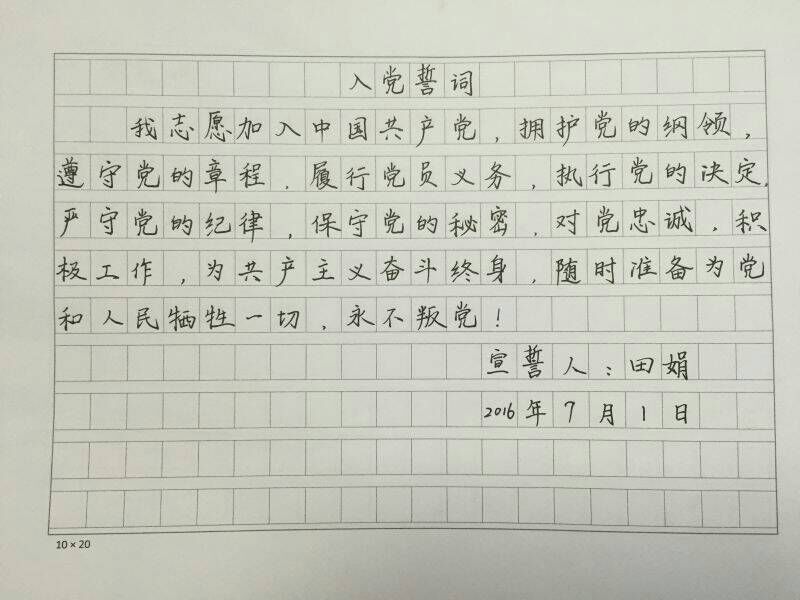 入党誓词
我志愿加入中国共产党，拥护党的纲领，
遵守党的章程，履行党员义务，执行党的决定，
严守党的纪律，保守党的秘密，对党忠诚，积
极工作，为共产主义奋斗终身，随时准备为党
和人民牺牲一切，永不叛党！
宣誓人：田娟
2016年7月1日
10×20